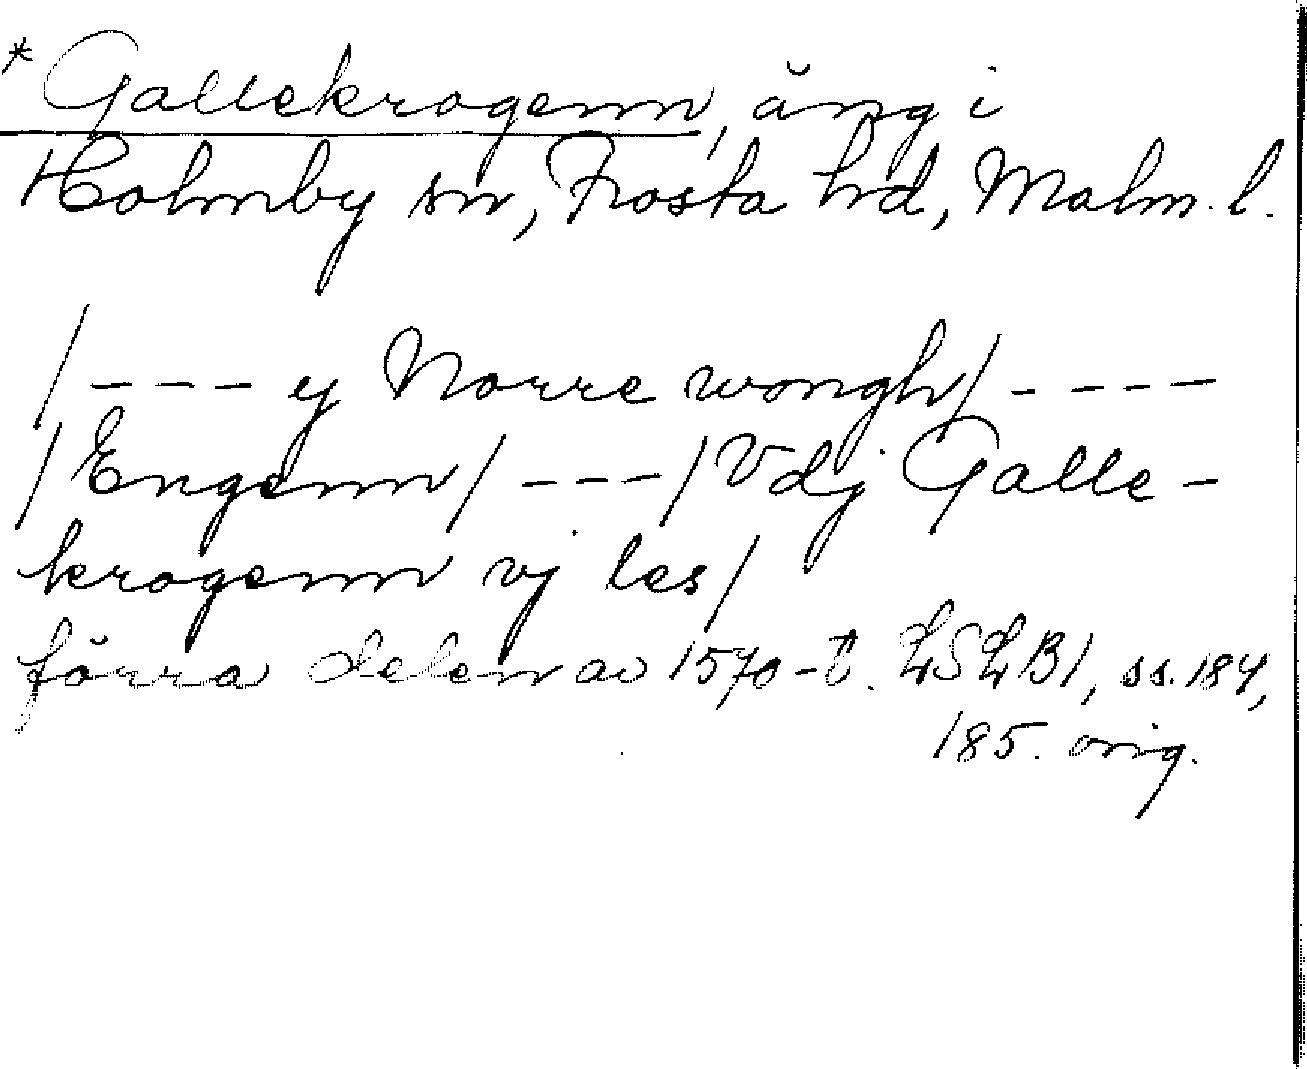 * Gallekrogenn, äng i
Holmby sn, Frosta hd, Malm. l.
/---- y Norre wongh/ ----
/Engenn/ ---/Vdj Galle-
krogenn vj les/
förra delen av 1570-t. LSLB1, ss. 184,
185. orig.